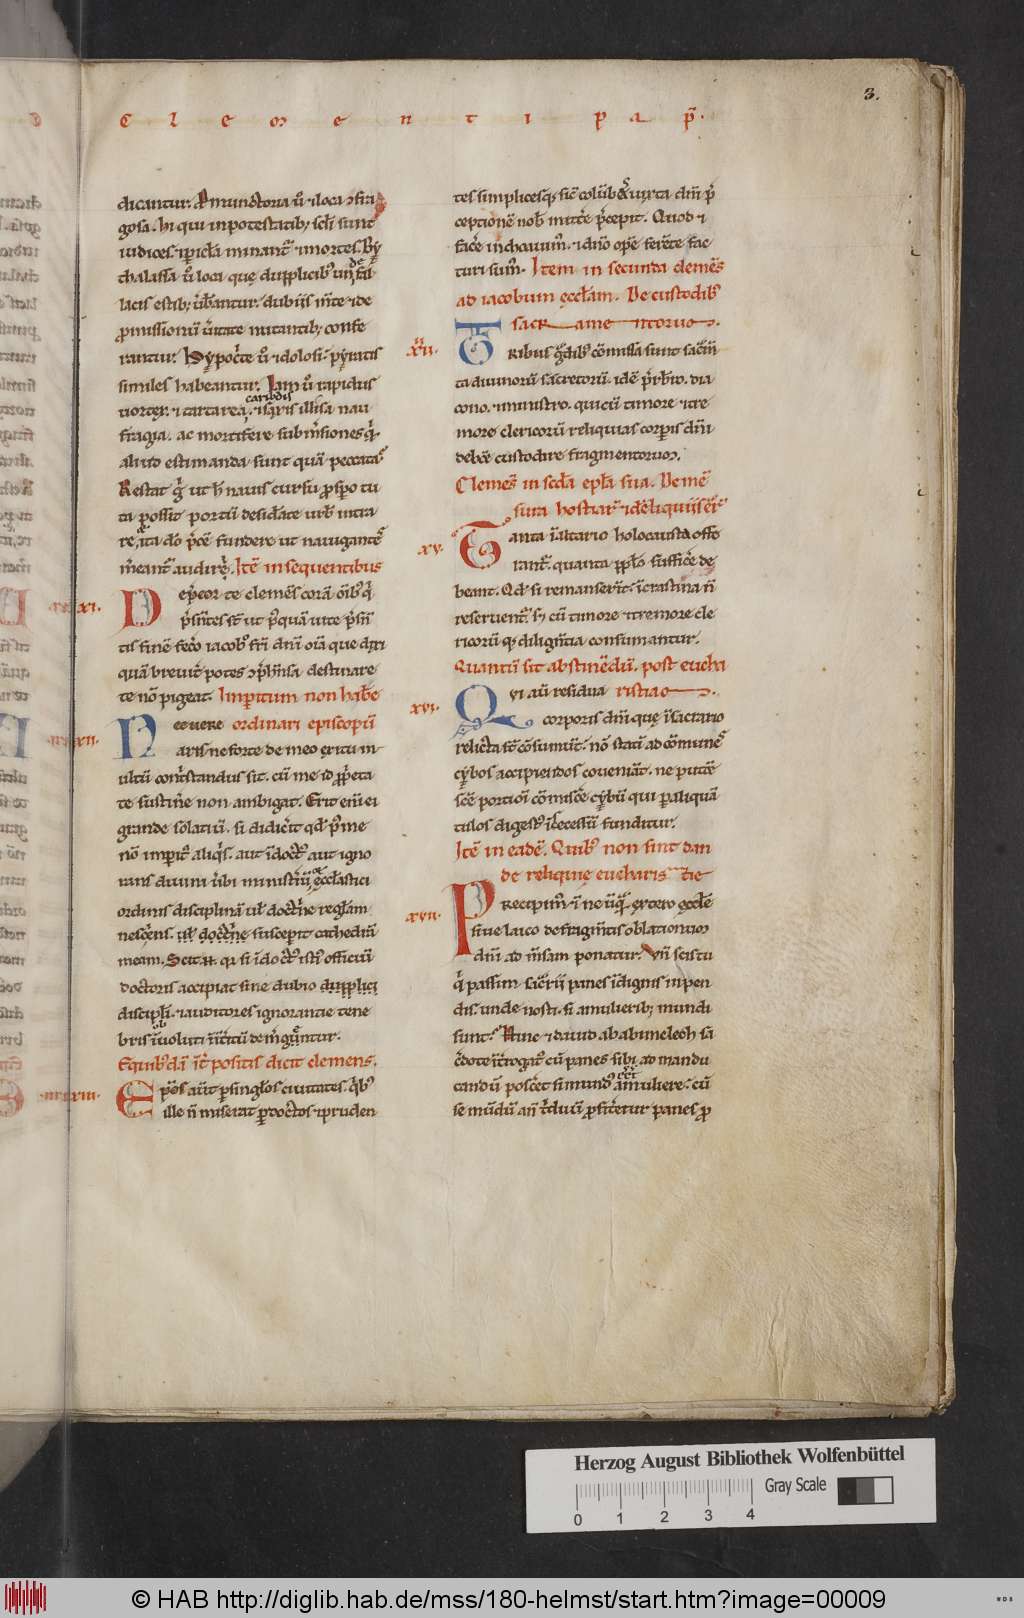 3.
C l e m e n t i p a p̄.
dicantur. Promunctoria ů & loca ɔfra
gosa. hi qui in potestatib; scl̄i sunt
iudices. & pericl̄a minant᷑ & mortes. By
thalassa ů loca que dupplicib᷒
lacis estib; ůbantur. dubiis m̄te & de
ꝓmissionū ůitate nutantib; confe
rantur. Hypocte ů & idolosi. pyratis
similes habeantur. Iam ů rapidus
uortex. & tartarea caribdis & saxis illisa nau
fragia. ac mortifere submersiones q̄.
aliud estimanda sunt quā peccata.
Restat g̊ ut h̄ nauis cursu ꝓspo tu
ta possit portū desidate urb̄ intra
re, ita do p̄ce fundere ut nauigante
m̄eant᷑ audire. Itē in sequentibus
xi.
Deprecor te clemēs corā oīb᷒ q̄
p̄sētes st̄ ut p̄quā uite p̄sen
tis finē feco iacobo fr̄i dn̄i oīa que
quā breuit potes ɔp̄hnsa destinare
te nō pigeat. Imperitum non habe
xii.
Nec uere ordinari episcopū
aris ne forte de meo exitu in
ultū cont̄standus sit. cū me id ꝓp̄eta
te sustin̄e non ambigat. Erit enī ei
grande solatiū. si didicit qd̄ p̄ me
nō imperit᷒ aliq̄s. aut īdoct᷒ aut igno
rans diuini ůbi ministeriū & eccl̄astici
ordinis disciplinā ut doctrine regl̄am
nesciens. ut doctrine susceperit cathedrā
meam. Scit. n̄. q̇a si īdoct᷒ isti officiū
doctoris accipiat sine dubio dupplici
discipl̄i. & auditores ignorantie tene
bris īuoluti ī īteritū demergūntur.
Equibusdā īt̄ positis dicit clemens.
xiii.
Ep̄os aut̄ per singl̄os ciuitates. q̄b᷒
ille n̄ miserat ꝑdoctos & pruden
tes simplicesq; sic̄ colūb& iuxta dn̄i p̄
ceptionē nob̄ mitt̄e p̄cepit. Quod &
fac̄e inchoauim᷒. & dn̄o ope ferēte fac
turi sum᷒. Item in secunda clemēs
ad iacobum eccl̄am. De custodib᷒
sacramentorum.
xiiii.
Tribus g̊dib᷒ cōmissa sunt sac̄m
ta diuinorū secretorū. id ē p̄rb̄ro. dia
cono. & ministro. qui cū timore & tre
more clericorū reliquias corp̄is dn̄i
debēt custodire fragmentorum.
Clemēs in scd̄a ep̄l̄a sua. De me
sura hostiar̄. & de reliquiis sec̄r
xv.
Tanta ī altario holocausta offe
rant᷑. quanta ppl̄o suffic̄e de
beant. Qd̄ si remanserint. ī crastina n̄
reseruent᷑. sꝫ cū timore & tremore cle
ricorū q; diligentia consumantur.
Quantū sit abstinēdū. post eucha
xvi.
ristiam.
Qvi aū residua
corporis dn̄i que ī sac̄rario
relicta sunt ɔsumūt. nō statī ad cōmunes
cybos accipiendos coueniāt. ne putēt
sc̄e portiōi cōmisce cybū qui paliquā
tulos digest᷒ ī secessū funditur.
Itē in eadē. Quib᷒ non sint dan
de reliquie eucharistie
xvii.
Precipim᷒. & ne ūq̄. extero eccl̄e
siue laico de fraḡmtis oblationum
dn̄i ad m̄sam ponatur. Vn̄ scis tu
q̄ passim sac̄rii panes īdignis inpen
dis. unde nosti. si a mulierib; mundi
sunt. Nunc & dauid ab abimelech sa
c̄dote īt̄rogat᷒ cū panes sibi ad mandu
candū posc̄et si mund᷒ a muliere. cū
se mūdū an̄ t̄duū ꝓfit̄etur panes ꝓ
Herzog August Bibliothek Wolfenbüttel
0 1 2 3 4
Gray Scale
© HAB http://diglib.hab.de/mss/180-helmst/start.htm?image=00009